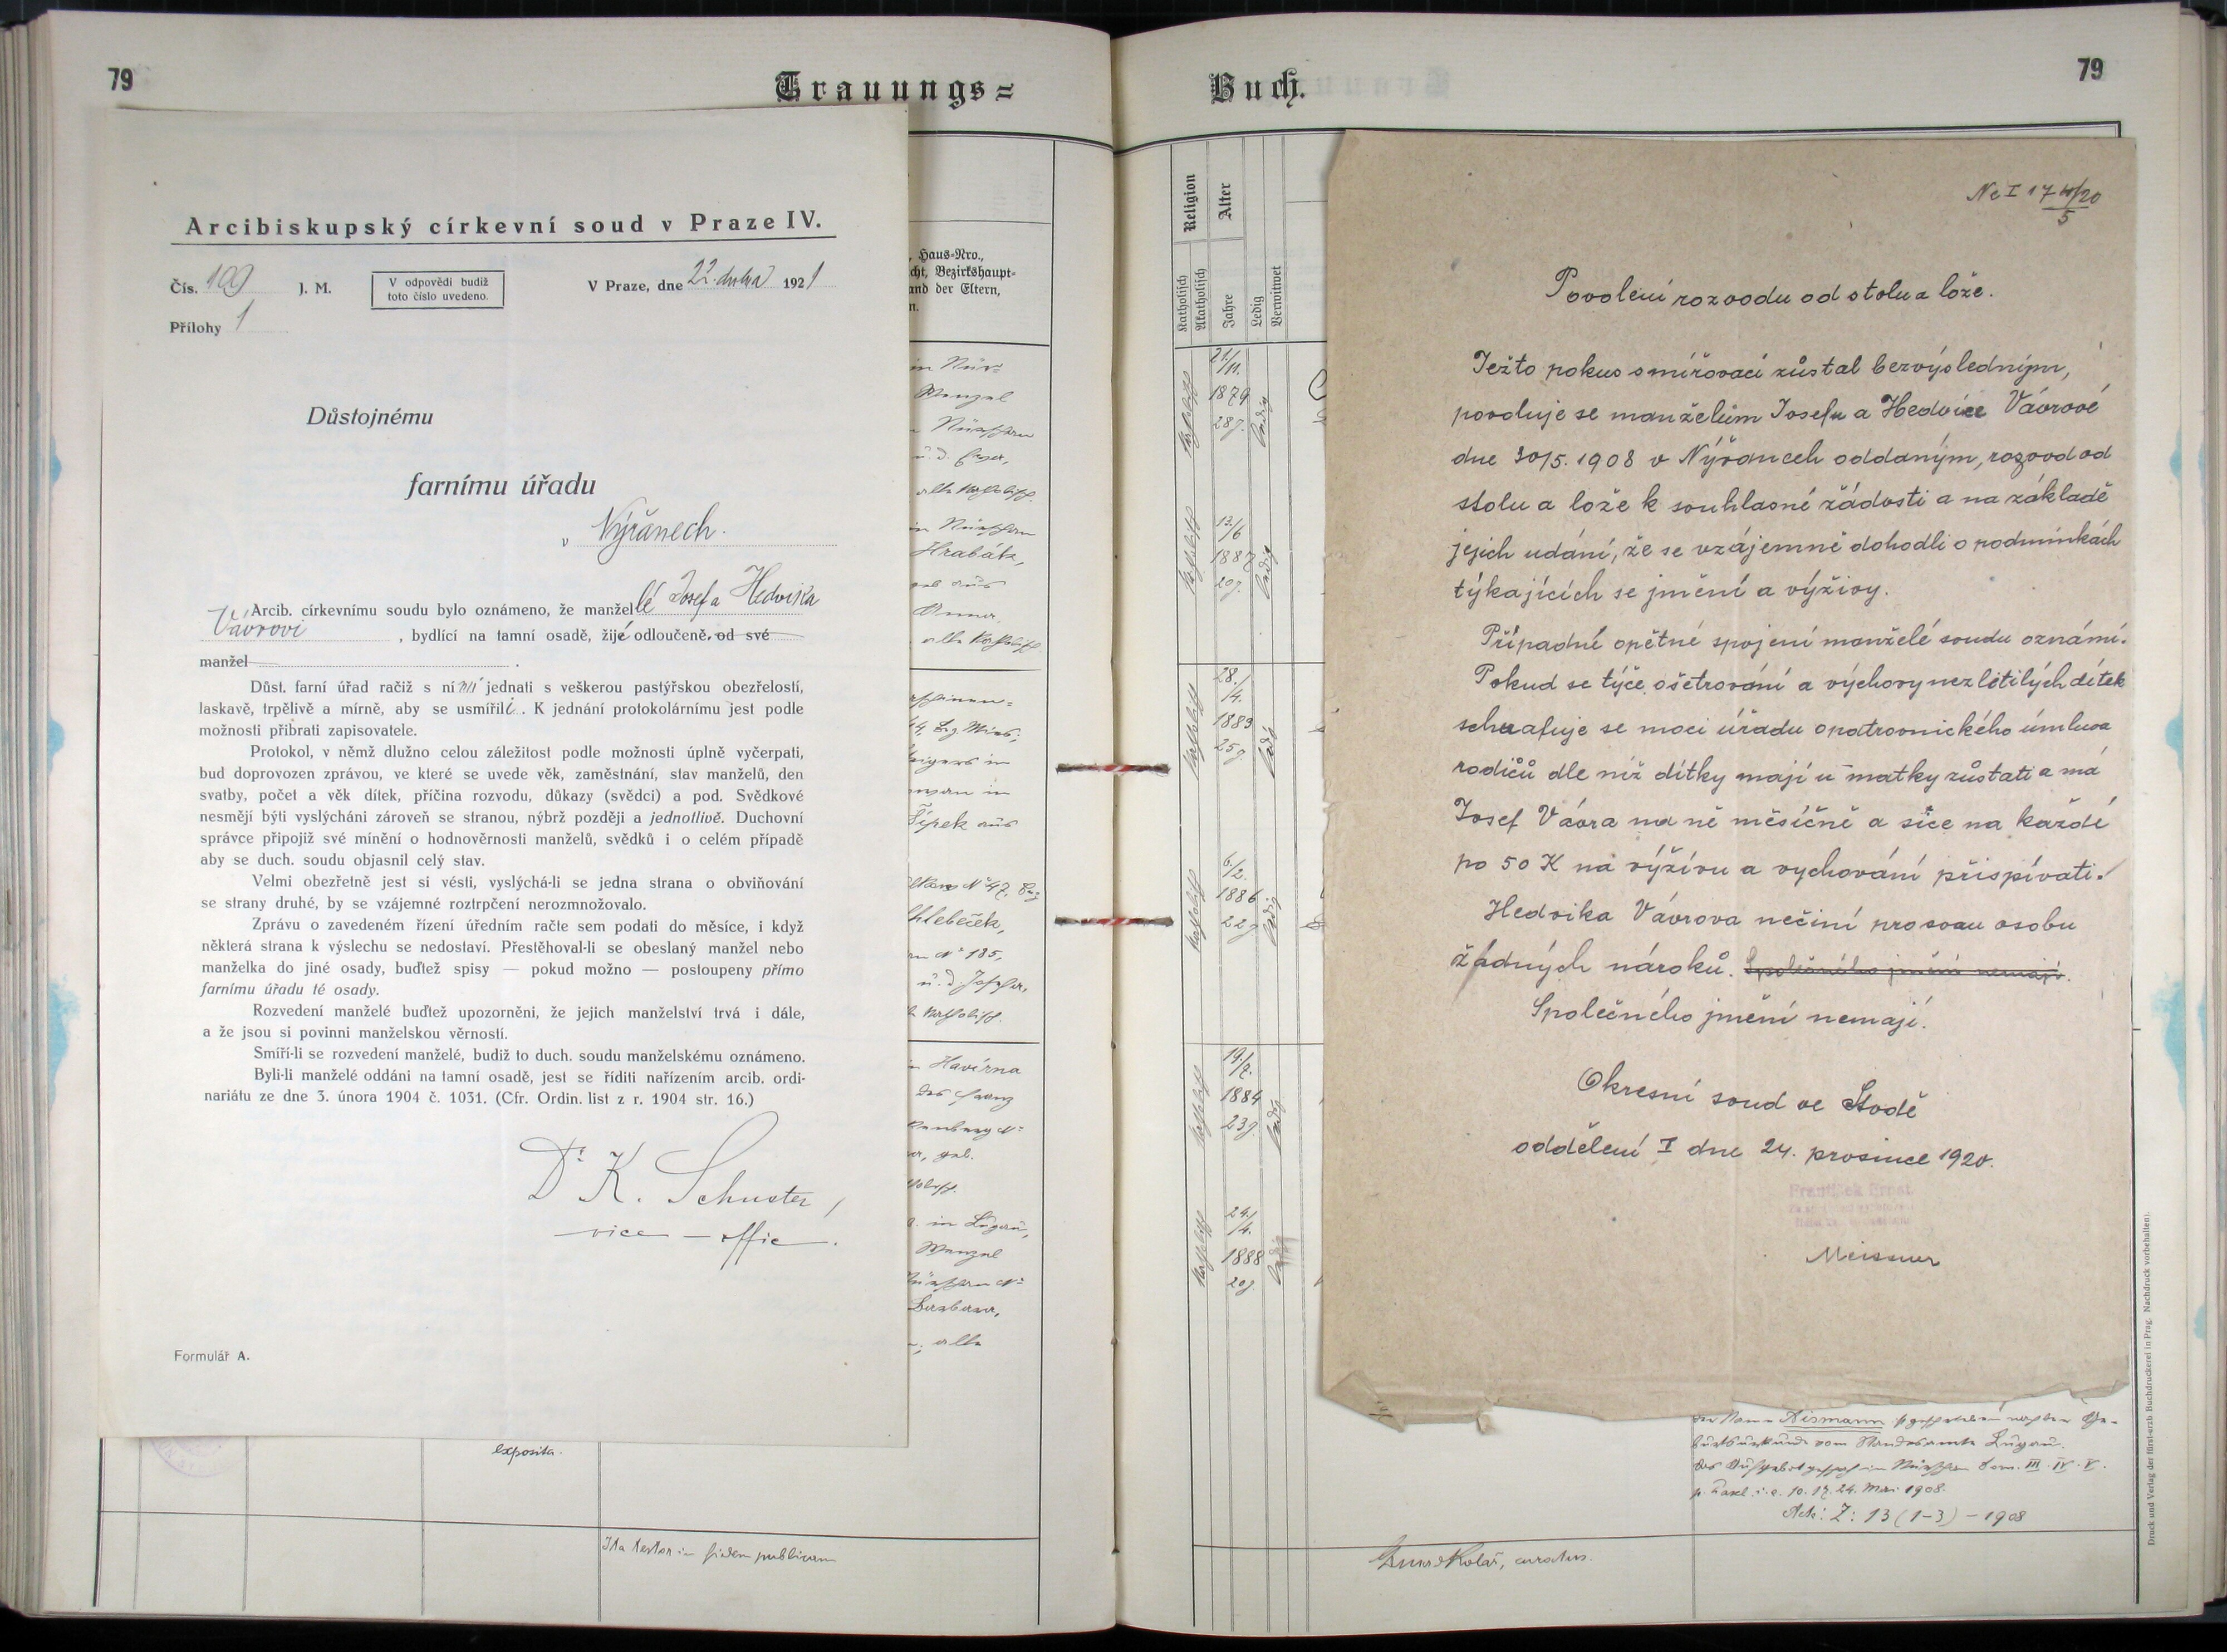 79
Trauungs=
Arcibiskupský církevní soud v Praze IV.
Čís. 109 J. M.
V odpovědi budiž
toto číslo uvedeno.
V Praze, dne 22. dubna 1921
Přílohy 1
Důstojnému
farnímu úřadu
v Nýřanech.
Arcib. církevnímu soudu bylo oznámeno, že manželé Josef a Hedvika
Vávrovi, bydlící na tamní osadě, žijé odloučeně, od své
manžel
Důst. farní úřad račiž s nimi jednati s veškerou pastýřskou obezřelostí,
laskavě, trpělivě a mírně, aby se usmířili. K jednání protokolárnímu jest podle
možnosti přibrati zapisovatele.
Protokol, v němž dlužno celou záležitost podle možnosti úplně vyčerpati,
bud doprovozen zprávou, ve které se uvede věk, zaměstnání, stav manželů, den
svatby, počet a věk dítek, příčina rozvodu, důkazy (svědci) a pod. Svědkové
nesmějí býti vyslýcháni zároveň se stranou, nýbrž později a jednotlivě. Duchovní
správce připojiž své mínění o hodnověrnosti manželů, svědků i o celém případě
aby se duch. soudu objasnil celý stav.
Velmi obezřetně jest si vésti, vyslýchá-li se jedna strana o obviňování
se strany druhé, by se vzájemné roztrpčení nerozmnožovalo.
Zprávu o zavedeném řízení úředním račte sem podati do měsíce, i když
některá strana k výslechu se nedostaví. Přestěhoval-li se obeslaný manžel nebo
manželka do jiné osady, buďtež spisy — pokud možno — postoupeny přímo
farnímu úřadu té osady.
Rozvedení manželé buďtež upozorněni, že jejich manželství trvá i dále,
a že jsou si povinni manželskou věrností.
Smíří-li se rozvedení manželé, budiž to duch. soudu manželskému oznámeno.
Byli-li manželé oddáni na tamní osadě, jest se říditi nařízením arcib. ordi-
nariátu ze dne 3. února 1904 č. 1031. (Cfr. Ordin. list z r. 1904 str. 16.)
Dr. K. Schuster
vice-offic.
Formulář A.
exposita.
Ita testor in fidem publicam
, Haus-Nro.,
cht, Bezirkshaupt-
and der Eltern,
n.
Wenzel
Hrabák,
Anna,
Šípek aus
Chlebeček,
No 185,
Havírna
in Lugau,
Wenzel
Barbara,
alle
Buch.
79
Religion
Alter
Katholisch
Akatholisch
Jahre
Ledig
Verwitwet
21./11.
1879
28 J.
13/6
1887
20 J.
28./4.
1883
25 J.
6./2.
1886
22 J.
1884
23 J.
24./4.
1888
20 J.
Nc I 174/20
5
Povolení rozvodu od stolu a lože.
Ježto pokus smiřovací zůstal bezvýsledným,
povoluje se manželům Josefu a Hedvice Vávrové
dne 30/5. 1908 v Nýřanech oddaným, rozvod od
stolu a lože k souhlasné žádosti a na základě
jejich udání, že se vzájemně dohodli o podmínkách
týkajících se jmění a výživy.
Případné opětné spojení manželé soudu oznámí.
Pokud se týče ošetrování a výchovy nezletilých dítek
schvaluje se moci úřadu opatrovnického úmluva
rodičů dle níž dítky mají u matky zůstati a má
Josef Vávra na ně měsíčně a sice na každé
po 50 K na výživu a vychování přispívati.
Hedvika Vávrova nečiní pro svou osobu
žádných nároků. Společného jmění nemají.
Společného jmění nemají.
Okresní soud ve Stodě
oddělení I dne 24. prosince 1920.
František Ernst
Meissner
Lugau.
10. 17. 24. Mai 1908.
Akt: Z: 13 (1-3) - 1908
Kolář, curatus.
Druck und Verlag der fürst-erzb. Buchdruckerei in Prag. Nachdruck vorbehalten).